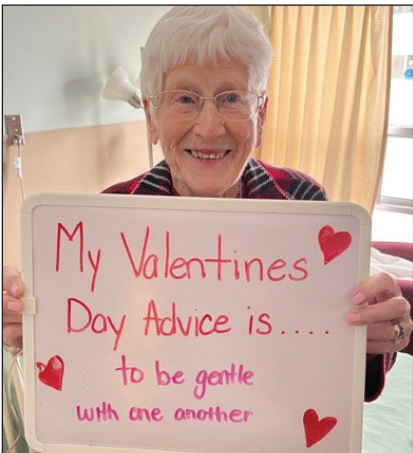 My Valentines
Day Advice is....
to be gentle
with one another